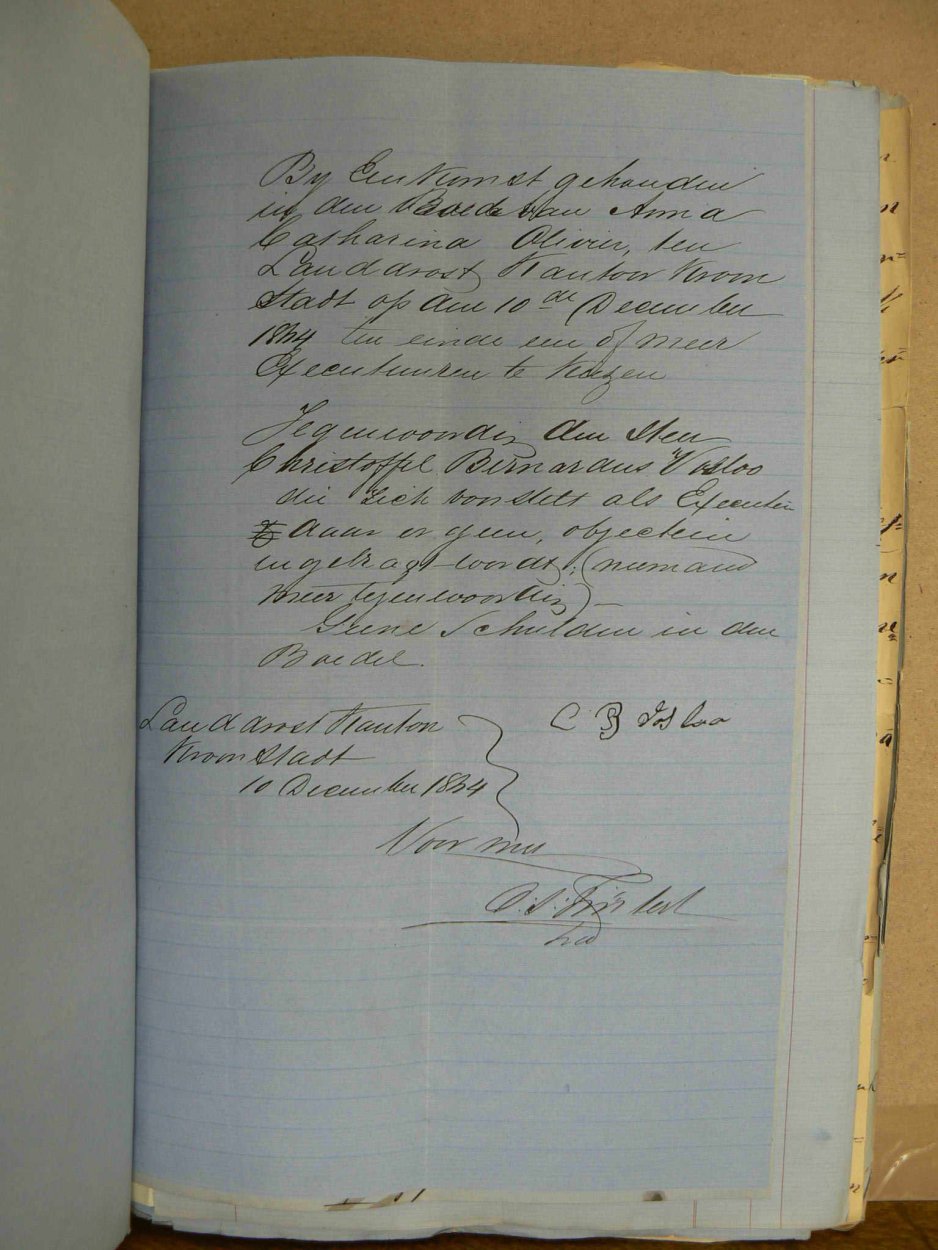 By Een Komst gehouden
in den Boedel van Anna
Catharina Olivier, ten
Landdrost Kantoor Kroon
Stadt op den 10de December
1884 ten einde een of meer
Executeuren te Kiezen
Tegenwoordig den Heer
Christoffel Bernardus Vosloo
die zich voorstelt als Executeur
daar er geen objectien
ingebragt wordt; (niemand
meer tegenwoordig)
Geene Schulden in den
Boedel.
Landdrost Kantoor
C B Vosloo
Kroonstadt
10 December 1884
Voor my